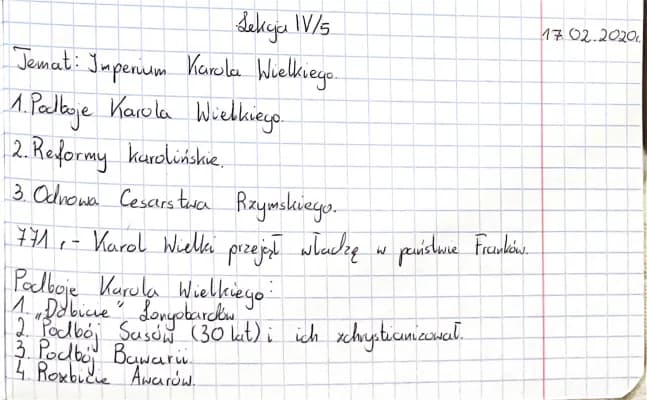 Lekcja IV/5
17.02.2020r.
Temat: Imperium Karola Wielkiego.
1. Podboje Karola Wielkiego.
2. Reformy karolińskie.
3. Odnowa Cesarstwa Rzymskiego.
771 r. - Karol Wielki przejął władzę w państwie Franków.
Podboje Karola Wielkiego:
1. „Dobicie" Longobardów
2. Podbój Sasów (30 lat) i ich zchrystianizował.
3. Podbój Bawarii.
4. Rozbicie Awarów.